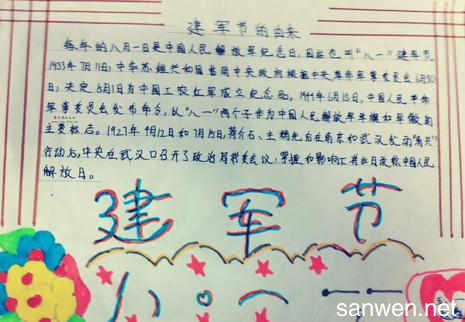 建军节的由来
每年的八月一日是中国人民解放军纪念日,因此也叫"八一"建军节。
1933年7月11日,中华苏维共和国临时中央政府根据中央革命军事委员会6月30
日,决定8月1日为中国工农红军成立纪念日。1949年6月15日,中国人民革命
军事委员会发布命令,以"八一"两个字作为中国人民解放军军旗和军徽的
主要标志。1927年4月12日和7月15日,蒋介石、汪精卫在南京和武汉发动"清共"
行动后,中央在武汉口召开了政治局
解放日。
建军节
八一
sanwen.net